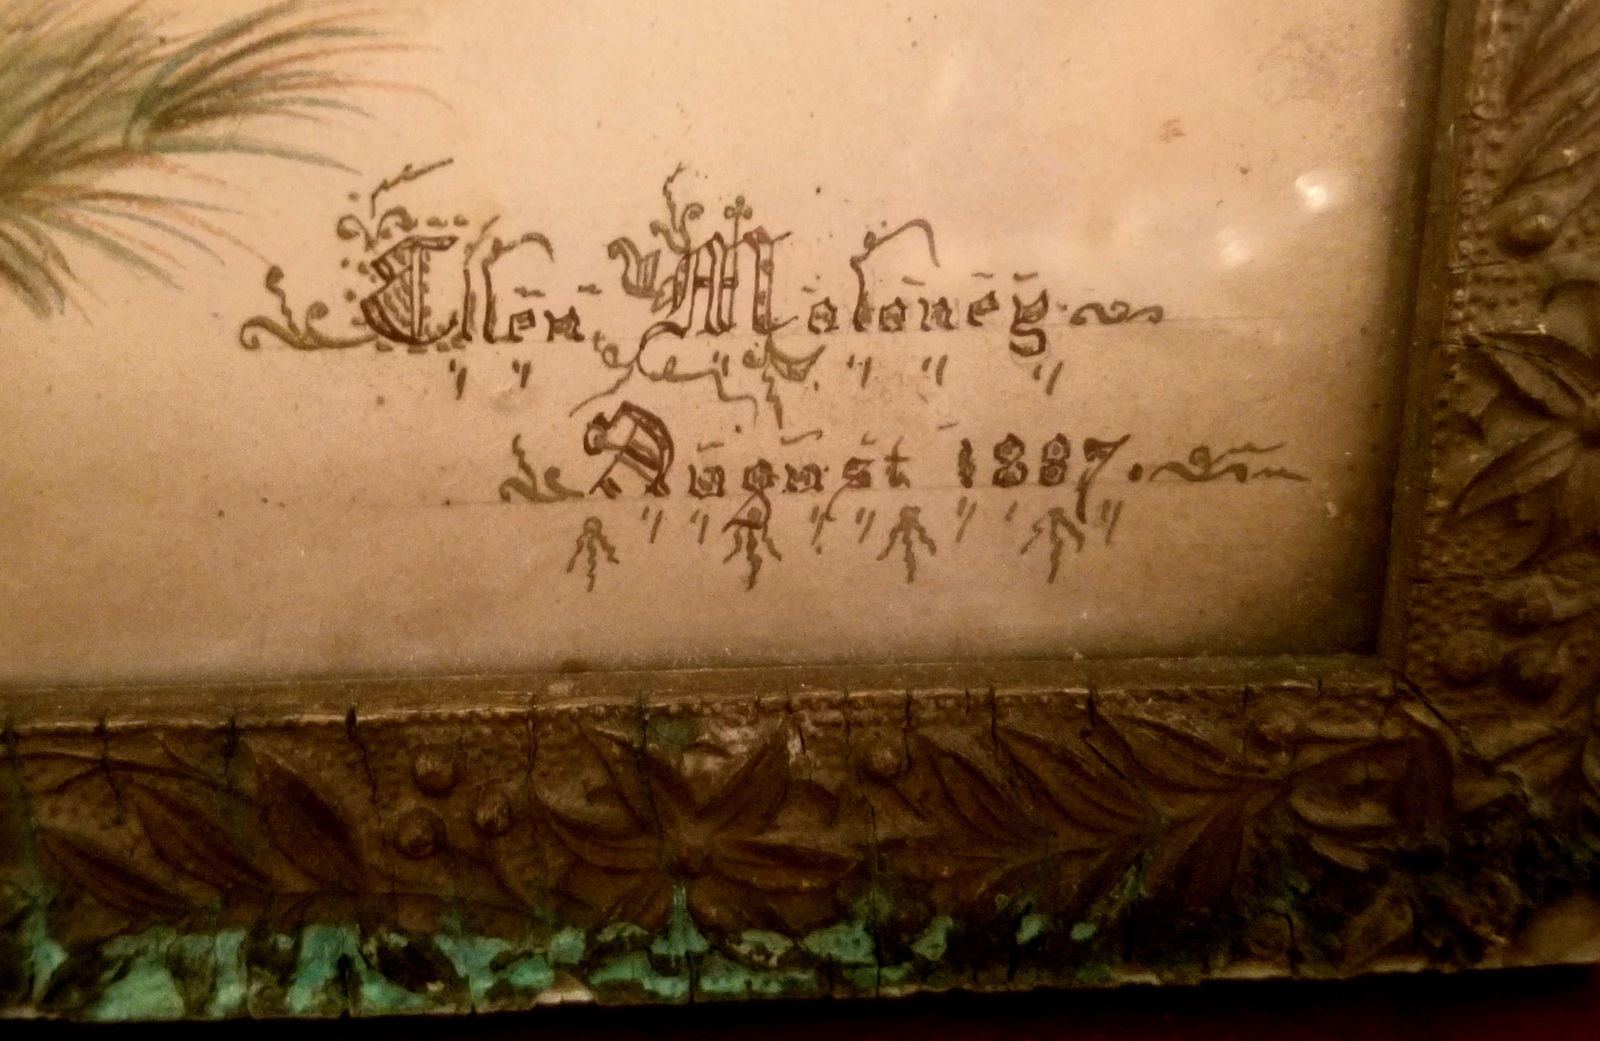 Ellen Maloney
August 1887.